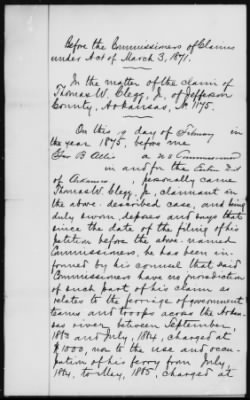 Before the Commissioners of Claims
under Act of March 3, 1871.
In the matter of the claim of
Thomas W. Clegg, Jr., of Jefferson
County, Arkansas, No. 1175.
On this 19 day of February in
the year 1875, before me
Geo B Allis a U S Commissioner
in and for the Eastern Dis
of Arkansas personally came
Thomas W. Clegg, Jr., claimant in
the above described case, and being
duly sworn, deposes and says that
since the date of the filing of his
petition before the above-named
Commissioners, he has been in-
formed by his counsel that said
Commissioners have no jurisdiction
of such part of his claim as
relates to the ferriage of government
teams and troops across the Arkan-
sas river, between September,
1863 and July, 1864, charged at
$1000, nor to the use and occu-
pation of his ferry from July,
1864, to May, 1865, charged at